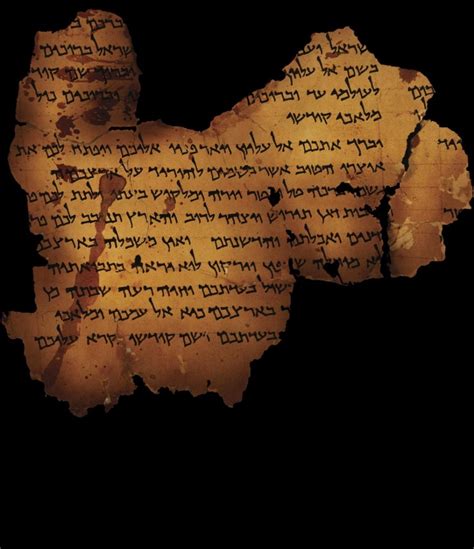 וברכם בש
ישראל וענ ישראל ברוכים
בשם אל עליון וברוך שם קודש
לעולמי עד וברוכים וברוכים כול
מלאכי קודשו
יברך אתכם אל עליון ויאר פניו אליכם ויפתח לכם את
אוצרו הטוב אשר בשמים להוריד על ארצכמה
גשמי ברכה טל ומטר יורה ומלקוש בעתו ולתת לכם פר
תנובות דגן תירוש ויצהר לרוב והארץ תנובב לכם פרי
דנים ואכלתם והדשנתם ואין משכלה בארצכם
וירקון לוא יראה בתבואתיה
בעדתכם וחיה רעה שבתה מן
בארצכם כיא אל עמכם ומלאכי
בעדתכם ושם קודשו נקרא עליכם